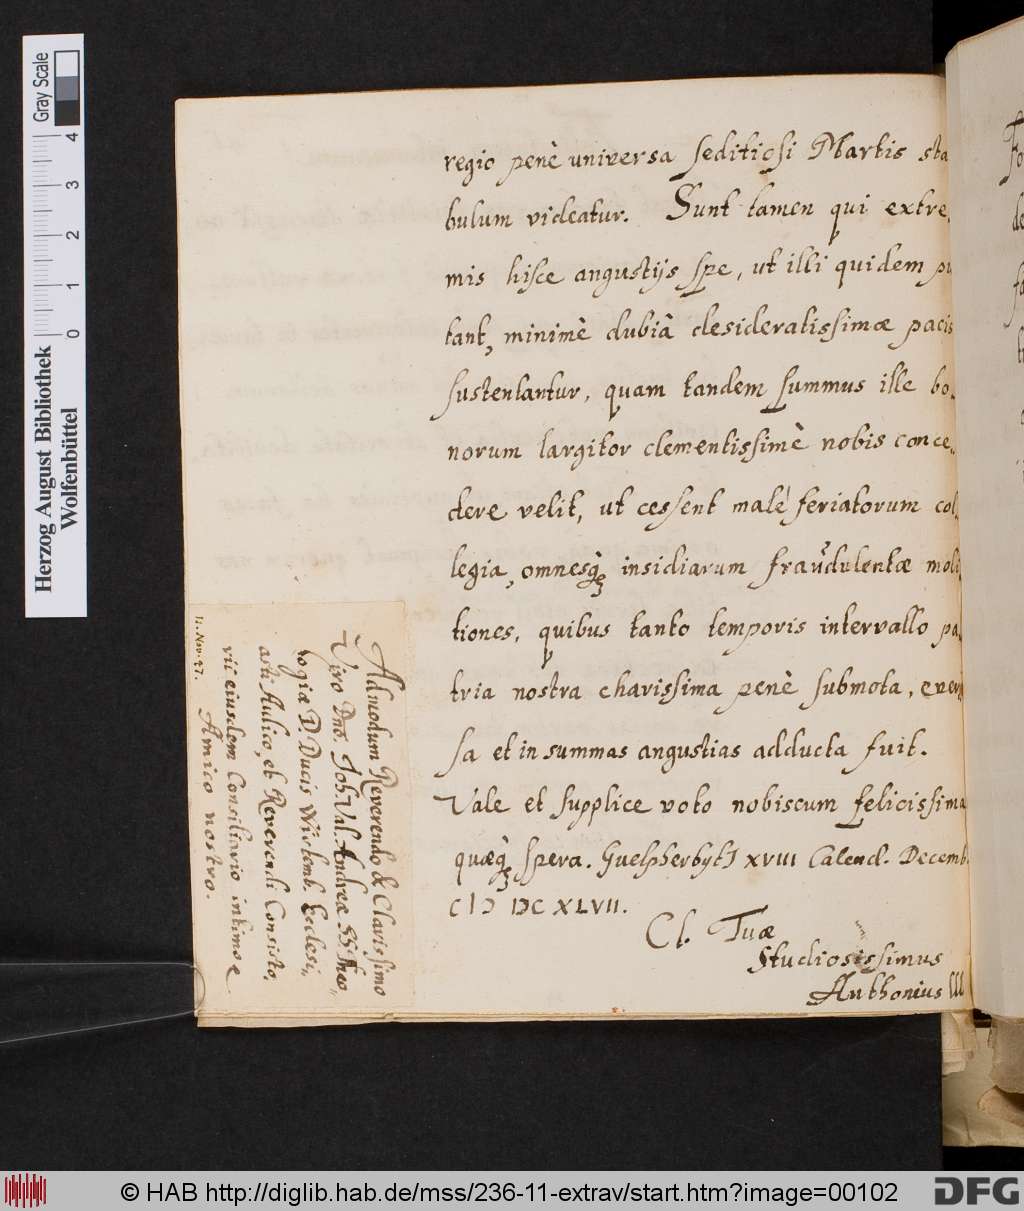 regio penè universa seditiosi Martis sta
bulum videatur. Sunt tamen qui extre,
mis hisce angustijs spe, ut illi quidem pu
tant, minimè dubiâ desideratissimæ pacis
sustentantur, quam tandem summus ille bo,
norum largitor clementissimè nobis conce,
dere velit, ut cessent malè feriatorum col,
legia, omnesq; insidiarum fraudulentæ moli
tiones, quibus tanto temporis intervallo pa,
tria nostra charissima penè submota, ever
sa et in summas angustias adducta fuit.
Vale et supplice voto nobiscum felicissima
quæq; spera. Guelpherbyti XVIII Calend. Decemb.
CIↃ IↃC XLVII.
Cl. Tuæ
Studiosissimus
Anthonius
11. Nov. 47.
Admodum Reverendo & Clarissimo
Viro Dnō. Joh. Val. Andreæ SS. Theo,
logiæ D. Ducis Würtemb. Ecclesi,,
asti Aulico, et Reverendi Consisto,
rii eiusdem Consiliario intimo e
Amico nostro.
Herzog August Bibliothek
Wolfenbüttel
0 1 2 3 4
Gray Scale
© HAB http://diglib.hab.de/mss/236-11-extrav/start.htm?image=00102
DFG